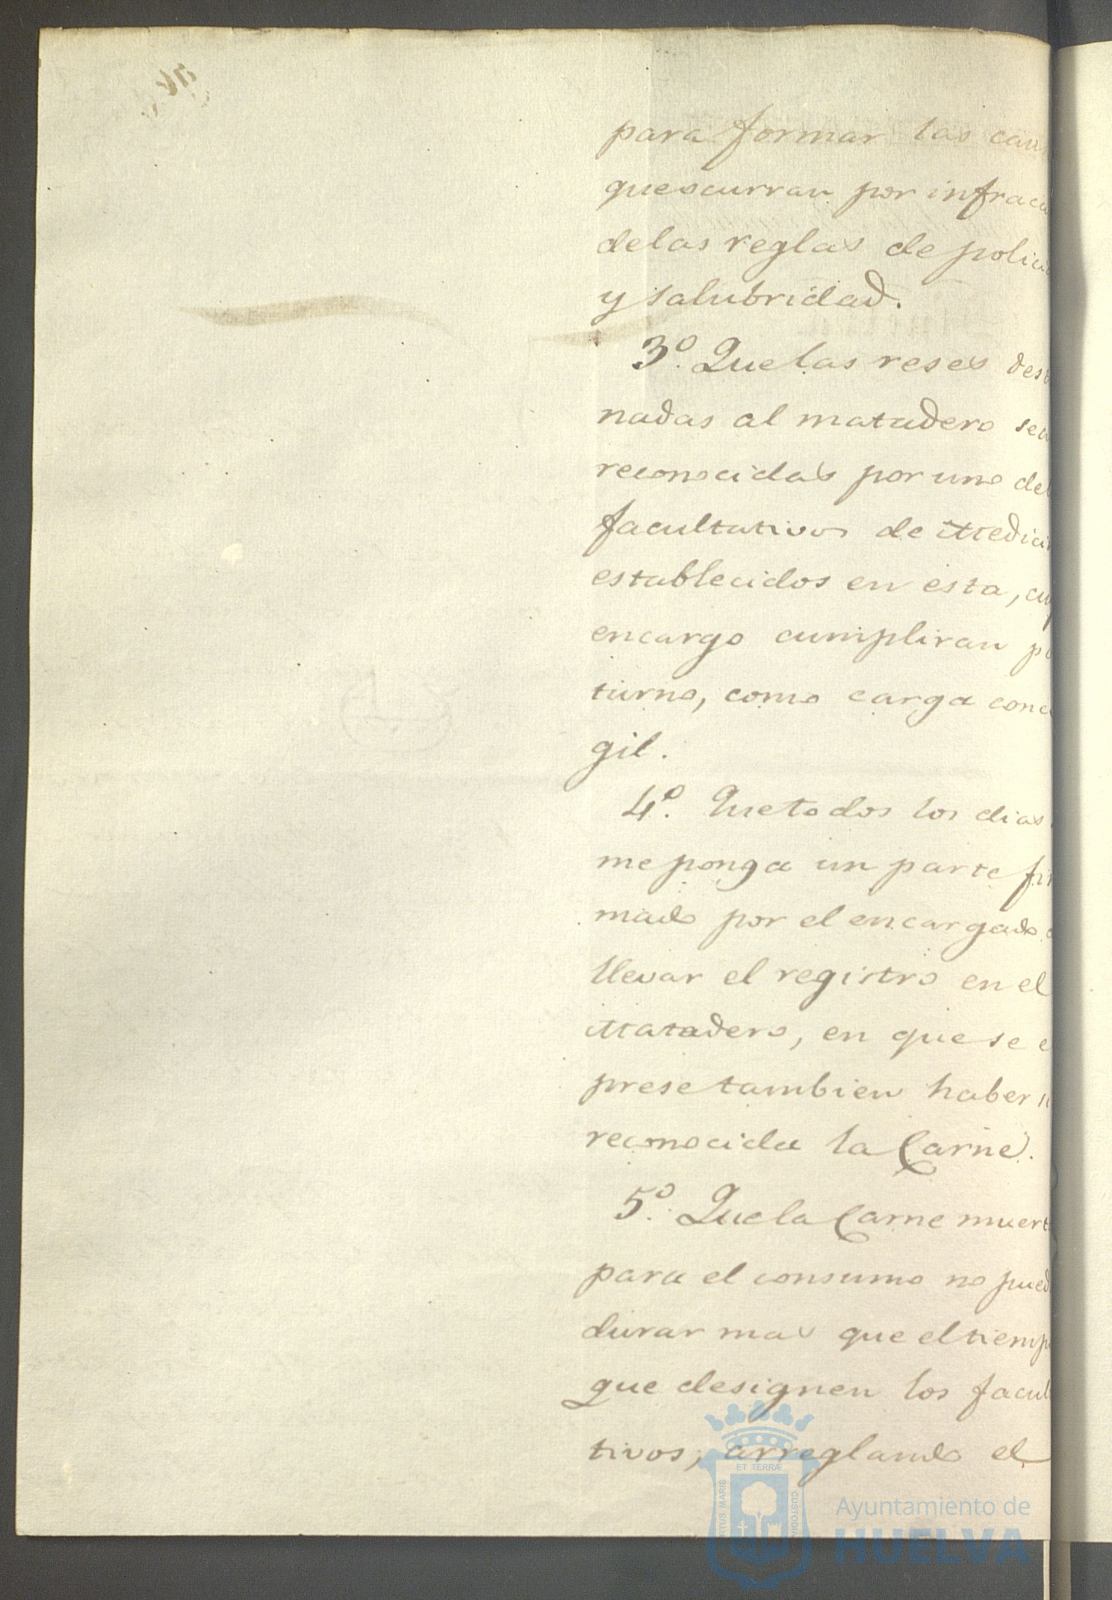 para formar las cau
que ocurran por infracci
de las reglas de polici
y salubridad.
3º. Que las reses des
nadas al matadero sea
reconocidas por uno de
facultativos de Medici
establecidos en esta, cuy
encargo cumpliran po
turno, como carga conce
gil.
4º. Que todos los dias
me ponga un parte fir
mado por el encargado
llevar el registro en el
Matadero, en que se e
prese tambien haber
reconocida la Carne.
5º. Que la Carne muert
para el consumo no pued
durar mas que el tiemp
que designen los facul
tivos, arreglando el
ET TERRÆ
PORTUS MARIS
CUSTODIA
Ayuntamiento de
HUELVA